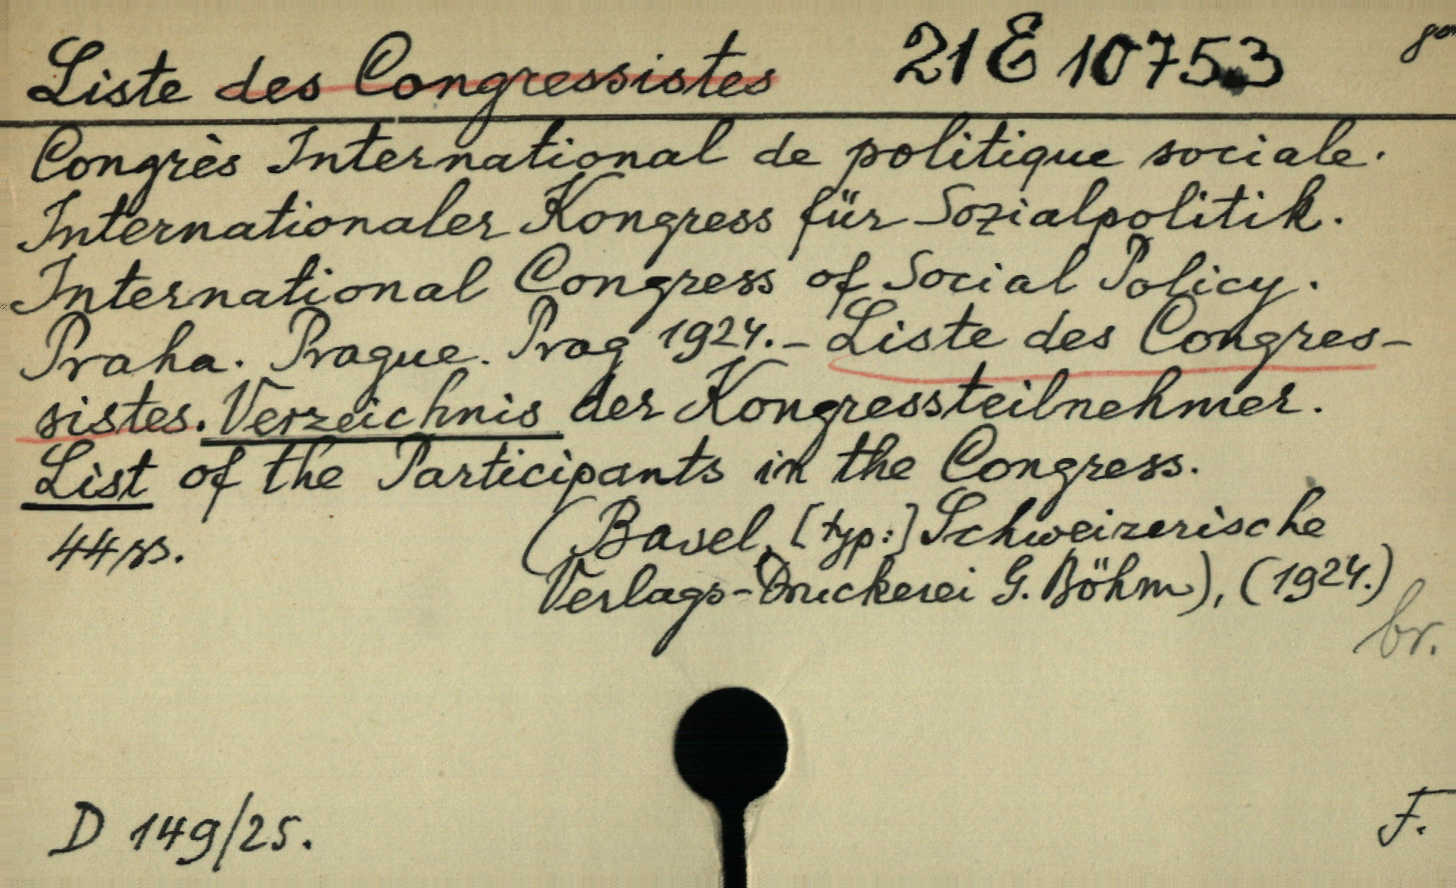 Liste des Congressistes 21 E 10753 8°
Congrès International de politique sociale.
Internationaler Kongress für Sozialpolitik.
International Congress of Social Policy.
Praha. Prague. Prag 1924. – Liste des Congres-
sistes. Verzeichnis der Kongressteilnehmer.
List of the Participants in the Congress.
44 ss. (Basel, [typ:] Schweizerische
Verlags-Druckerei G. Böhm), (1924.)
br.
D 149/25. F.